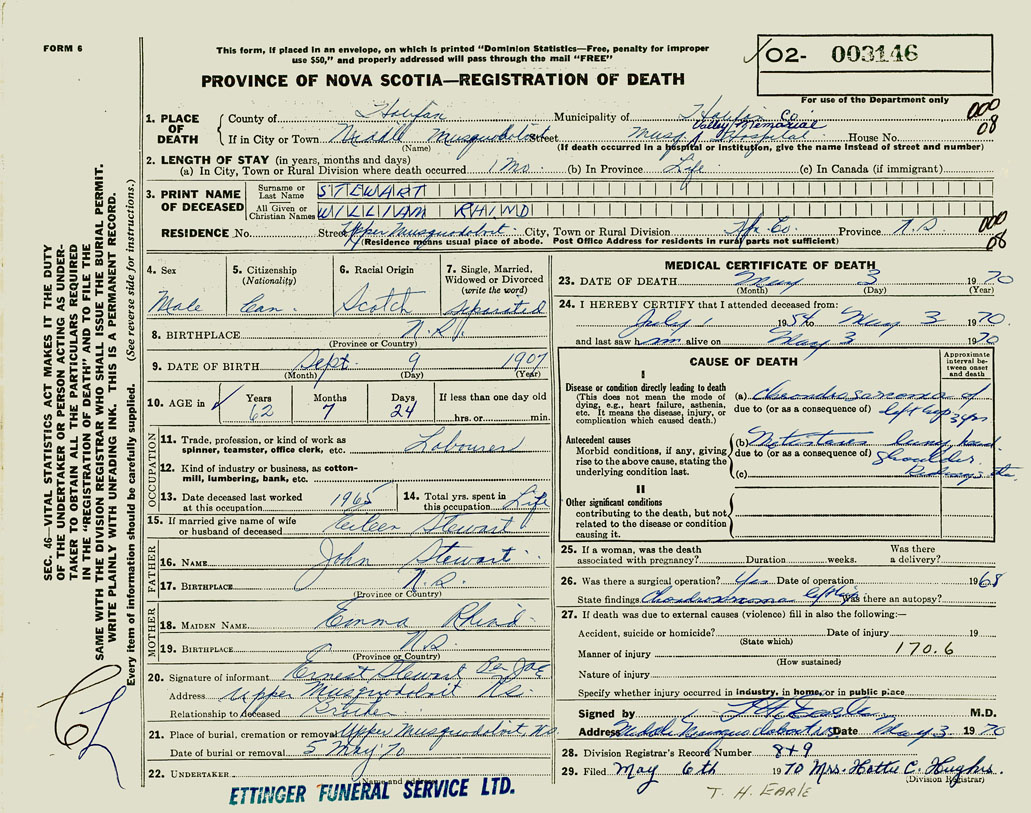 FORM 6
This form, if placed in an envelope, on which is printed "Dominion Statistics—Free, penalty for improper
use $50," and properly addressed will pass through the mail "FREE"
PROVINCE OF NOVA SCOTIA—REGISTRATION OF DEATH
O2- 003146
For use of the Department only
000
08
1. PLACE OF DEATH
County of Halifax Municipality of Halifax Co.
If in City or Town Middle Musquodoboit Street Musq. Valley Memorial Hospital House No.
(Name) (If death occurred in a hospital or institution, give the name instead of street and number)
2. LENGTH OF STAY (in years, months and days)
(a) In City, Town or Rural Division where death occurred 1 Mo. (b) In Province Life (c) In Canada (if immigrant)
3. PRINT NAME OF DECEASED
Surname or Last Name STEWART
All Given or Christian Names WILLIAM RHIND
RESIDENCE No. Street Upper Musquodoboit City, Town or Rural Division Hfx Co. Province N.S.
(Residence means usual place of abode. Post Office Address for residents in rural parts not sufficient)
000
08
4. Sex Male
5. Citizenship (Nationality) Can.
6. Racial Origin Scotch
7. Single, Married, Widowed or Divorced (write the word) separated
8. BIRTHPLACE N.S.
(Province or Country)
9. DATE OF BIRTH Sept. 9 1907
(Month) (Day) (Year)
10. AGE in ✓ Years 62 Months 7 Days 24 If less than one day old hrs. or min.
OCCUPATION
11. Trade, profession, or kind of work as spinner, teamster, office clerk, etc. Labourer
12. Kind of industry or business, as cotton-mill, lumbering, bank, etc.
13. Date deceased last worked at this occupation 1965
14. Total yrs. spent in this occupation Life
15. If married give name of wife or husband of deceased Eileen Stewart
FATHER
16. NAME John Stewart
17. BIRTHPLACE N.S.
(Province or Country)
MOTHER
18. MAIDEN NAME Emma Rhind
19. BIRTHPLACE N.S.
(Province or Country)
20. Signature of informant Ernest Stewart
Address Upper Musquodoboit N.S.
Relationship to deceased Brother
21. Place of burial, cremation or removal Upper Musquodoboit N.S.
Date of burial or removal 5 May 70
22. UNDERTAKER
(Name and address)
ETTINGER FUNERAL SERVICE LTD.
MEDICAL CERTIFICATE OF DEATH
23. DATE OF DEATH May 3 1970
(Month) (Day) (Year)
24. I HEREBY CERTIFY that I attended deceased from:
July 1 1954 to May 3 1970
and last saw him alive on May 3 1970
CAUSE OF DEATH
Approximate interval between onset and death
I
Disease or condition directly leading to death
(This does not mean the mode of dying, e.g., heart failure, asthenia, etc. It means the disease, injury, or complication which caused death.)
(a) Chondrosarcoma of
due to (or as a consequence of) left hip 3 yrs
Antecedent causes
Morbid conditions, if any, giving rise to the above cause, stating the underlying condition last.
(b) Metastases lung, head
due to (or as a consequence of) shoulder
(c) Kidneys etc.
II
Other significant conditions
contributing to the death, but not related to the disease or condition causing it.
25. If a woman, was the death associated with pregnancy? Duration weeks. Was there a delivery?
26. Was there a surgical operation? Yes Date of operation 1968
State findings Chondrosarcoma left hip Was there an autopsy?
27. If death was due to external causes (violence) fill in also the following:—
Accident, suicide or homicide? Date of injury 19
(State which)
Manner of injury 170.6
(How sustained)
Nature of injury
Specify whether injury occurred in industry, in home, or in public place
Signed by T H Earle M.D.
Address Middle Musquodoboit N.S. Date May 3 1970
28. Division Registrar's Record Number 849
29. Filed May 6th 1970 Mrs. Hattie C. Hughes.
(Division Registrar)
T. H. EARLE
SEC. 46—VITAL STATISTICS ACT MAKES IT THE DUTY
OF THE UNDERTAKER OR PERSON ACTING AS UNDER-
TAKER TO OBTAIN ALL THE PARTICULARS REQUIRED
IN THE "REGISTRATION OF DEATH" AND TO FILE THE
SAME WITH THE DIVISION REGISTRAR WHO SHALL ISSUE THE BURIAL PERMIT.
WRITE PLAINLY WITH UNFADING INK. THIS IS A PERMANENT RECORD.
Every item of information should be carefully supplied. (See reverse side for instructions.)